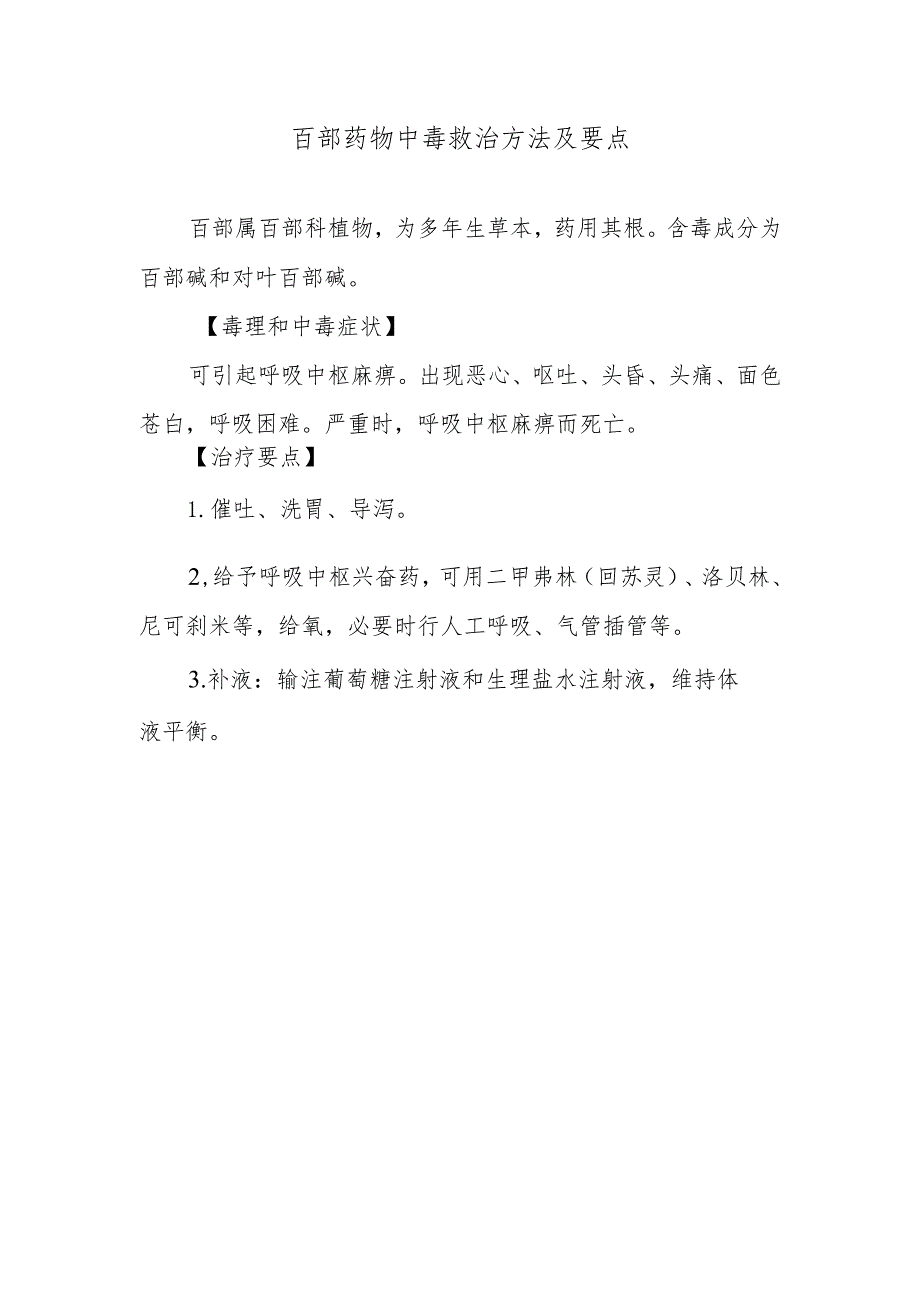 百部药物中毒救治方法及要点
百部属百部科植物，为多年生草本，药用其根。含毒成分为
百部碱和对叶百部碱。
【毒理和中毒症状】
可引起呼吸中枢麻痹。出现恶心、呕吐、头昏、头痛、面色
苍白，呼吸困难。严重时，呼吸中枢麻痹而死亡。
【治疗要点】
1. 催吐、洗胃、导泻。
2,给予呼吸中枢兴奋药，可用二甲弗林（回苏灵）、洛贝林、
尼可刹米等，给氧，必要时行人工呼吸、气管插管等。
3.补液：输注葡萄糖注射液和生理盐水注射液，维持体
液平衡。